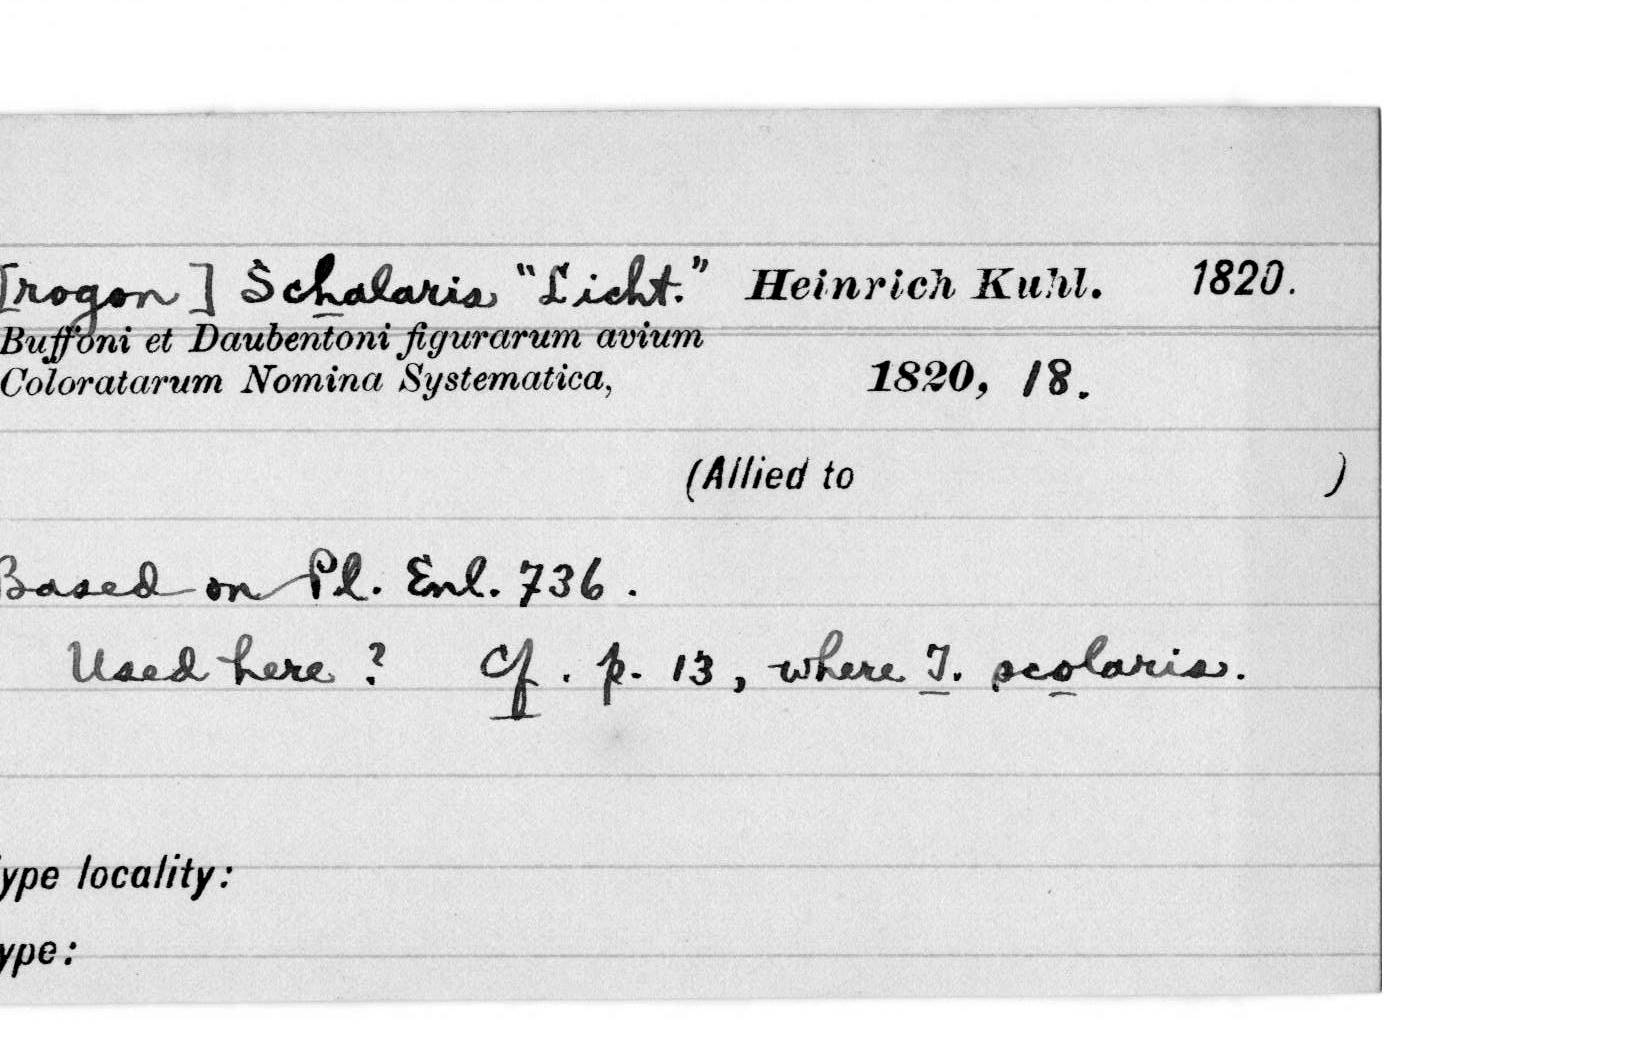 [rogon] Schalaris "Licht." Heinrich Kuhl. 1820.
Buffoni et Daubentoni figurarum avium
Coloratarum Nomina Systematica, 1820, 18.
(Allied to )
Based on Pl. Enl. 736.
Used here? Cf. p. 13, where T. scolaris.
ype locality:
ype: